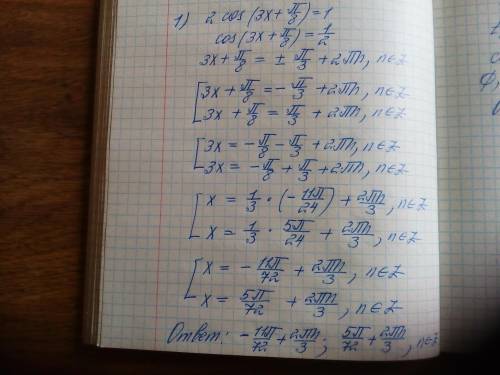 1) 2 cos(3x + π/8) = 1
cos(3x + π/8) = 1/2
3x + π/8 = ± π/3 + 2πn, n∈Z
[3x + π/8 = - π/3 + 2πn, n∈Z
3x + π/8 = π/3 + 2πn, n∈Z
[3x = - π/8 - π/3 + 2πn, n∈Z
3x = - π/8 + π/3 + 2πn, n∈Z
[x = 1/3 · (- 11π/24) + 2πn/3, n∈Z
x = 1/3 · 5π/24 + 2πn/3, n∈Z
[x = - 11π/72 + 2πn/3, n∈Z
x = 5π/72 + 2πn/3, n∈Z
Ответ: - 11π/72 + 2πn/3; 5π/72 + 2πn/3, n∈Z